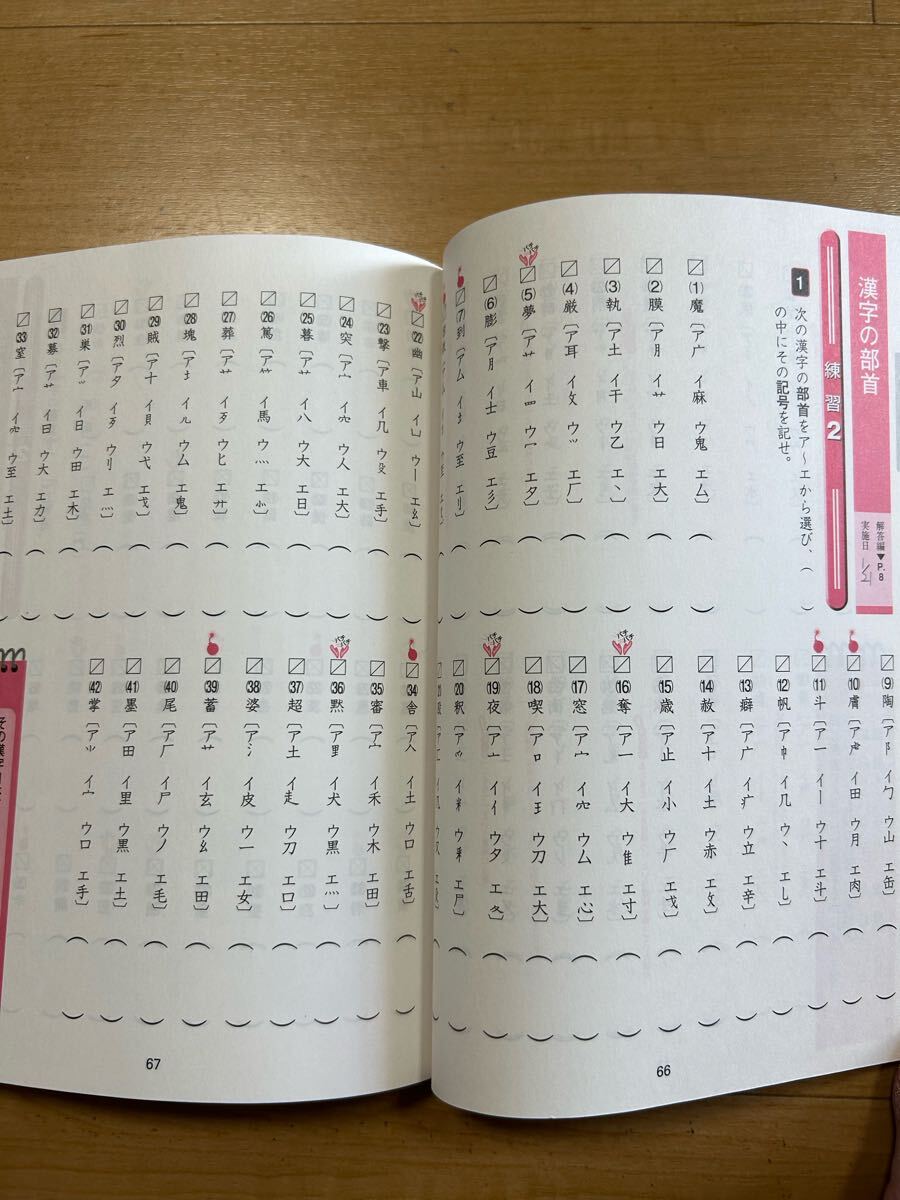 漢字の部首
解答編▼P.8
実施日
練習2
1 次の漢字の部首をア〜エから選び、（　）
の中にその記号を記せ。
(1) 魔〔ア广 イ麻 ウ鬼 エム〕
(2) 膜〔ア月 イ艹 ウ日 エ大〕
(3) 執〔ア土 イ干 ウ乙 エ丶〕
(4) 厳〔ア耳 イ攵 ウ⺍ エ厂〕
(5) 夢〔ア艹 イ罒 ウ冖 エ夕〕
(6) 膨〔ア月 イ士 ウ豆 エ彡〕
(7) 到〔アム イ土 ウ至 エ刂〕
(9) 陶〔ア阝 イ勹 ウ山 エ缶〕
(10) 膚〔ア虍 イ田 ウ月 エ肉〕
(11) 斗〔ア一 イ丨 ウ十 エ斗〕
(12) 帆〔ア巾 イ几 ウ丶 エ乚〕
(13) 癖〔ア广 イ疒 ウ立 エ辛〕
(14) 赦〔ア十 イ土 ウ赤 エ攵〕
(15) 歳〔ア止 イ小 ウ厂 エ戈〕
(16) 奪〔ア一 イ大 ウ隹 エ寸〕
(17) 窓〔ア宀 イ穴 ウム エ心〕
(18) 喫〔ア口 イ王 ウ刀 エ大〕
(19) 夜〔ア亠 イイ ウ夕 エ夂〕
(20) 釈〔ア爫 イ米 ウ釆 エ尸〕
66
(22) 幽〔ア山 イ凵 ウ丨 エ幺〕
(23) 撃〔ア車 イ几 ウ殳 エ手〕
(24) 突〔ア宀 イ穴 ウ人 エ大〕
(25) 暮〔ア艹 イ八 ウ大 エ日〕
(26) 篤〔ア⺮ イ馬 ウ灬 エ⺗〕
(27) 葬〔ア艹 イ歹 ウヒ エ廾〕
(28) 塊〔ア土 イ儿 ウム エ鬼〕
(29) 賊〔ア十 イ貝 ウ弋 エ戈〕
(30) 烈〔ア夕 イ歹 ウ刂 エ灬〕
(31) 巣〔ア⺍ イ日 ウ田 エ木〕
(32) 募〔ア艹 イ日 ウ大 エ力〕
(33) 室〔ア宀 イ穴 ウ至 エ土〕
(34) 舎〔ア𠆢 イ土 ウ口 エ舌〕
(35) 審〔ア宀 イ禾 ウ木 エ田〕
(36) 黙〔ア里 イ犬 ウ黒 エ灬〕
(37) 超〔ア土 イ走 ウ刀 エ口〕
(38) 婆〔ア氵 イ皮 ウ一 エ女〕
(39) 蓄〔ア艹 イ玄 ウ幺 エ田〕
(40) 尾〔ア厂 イ尸 ウノ エ毛〕
(41) 墨〔ア田 イ里 ウ黒 エ土〕
(42) 掌〔ア⺌ イ宀 ウ口 エ手〕
67